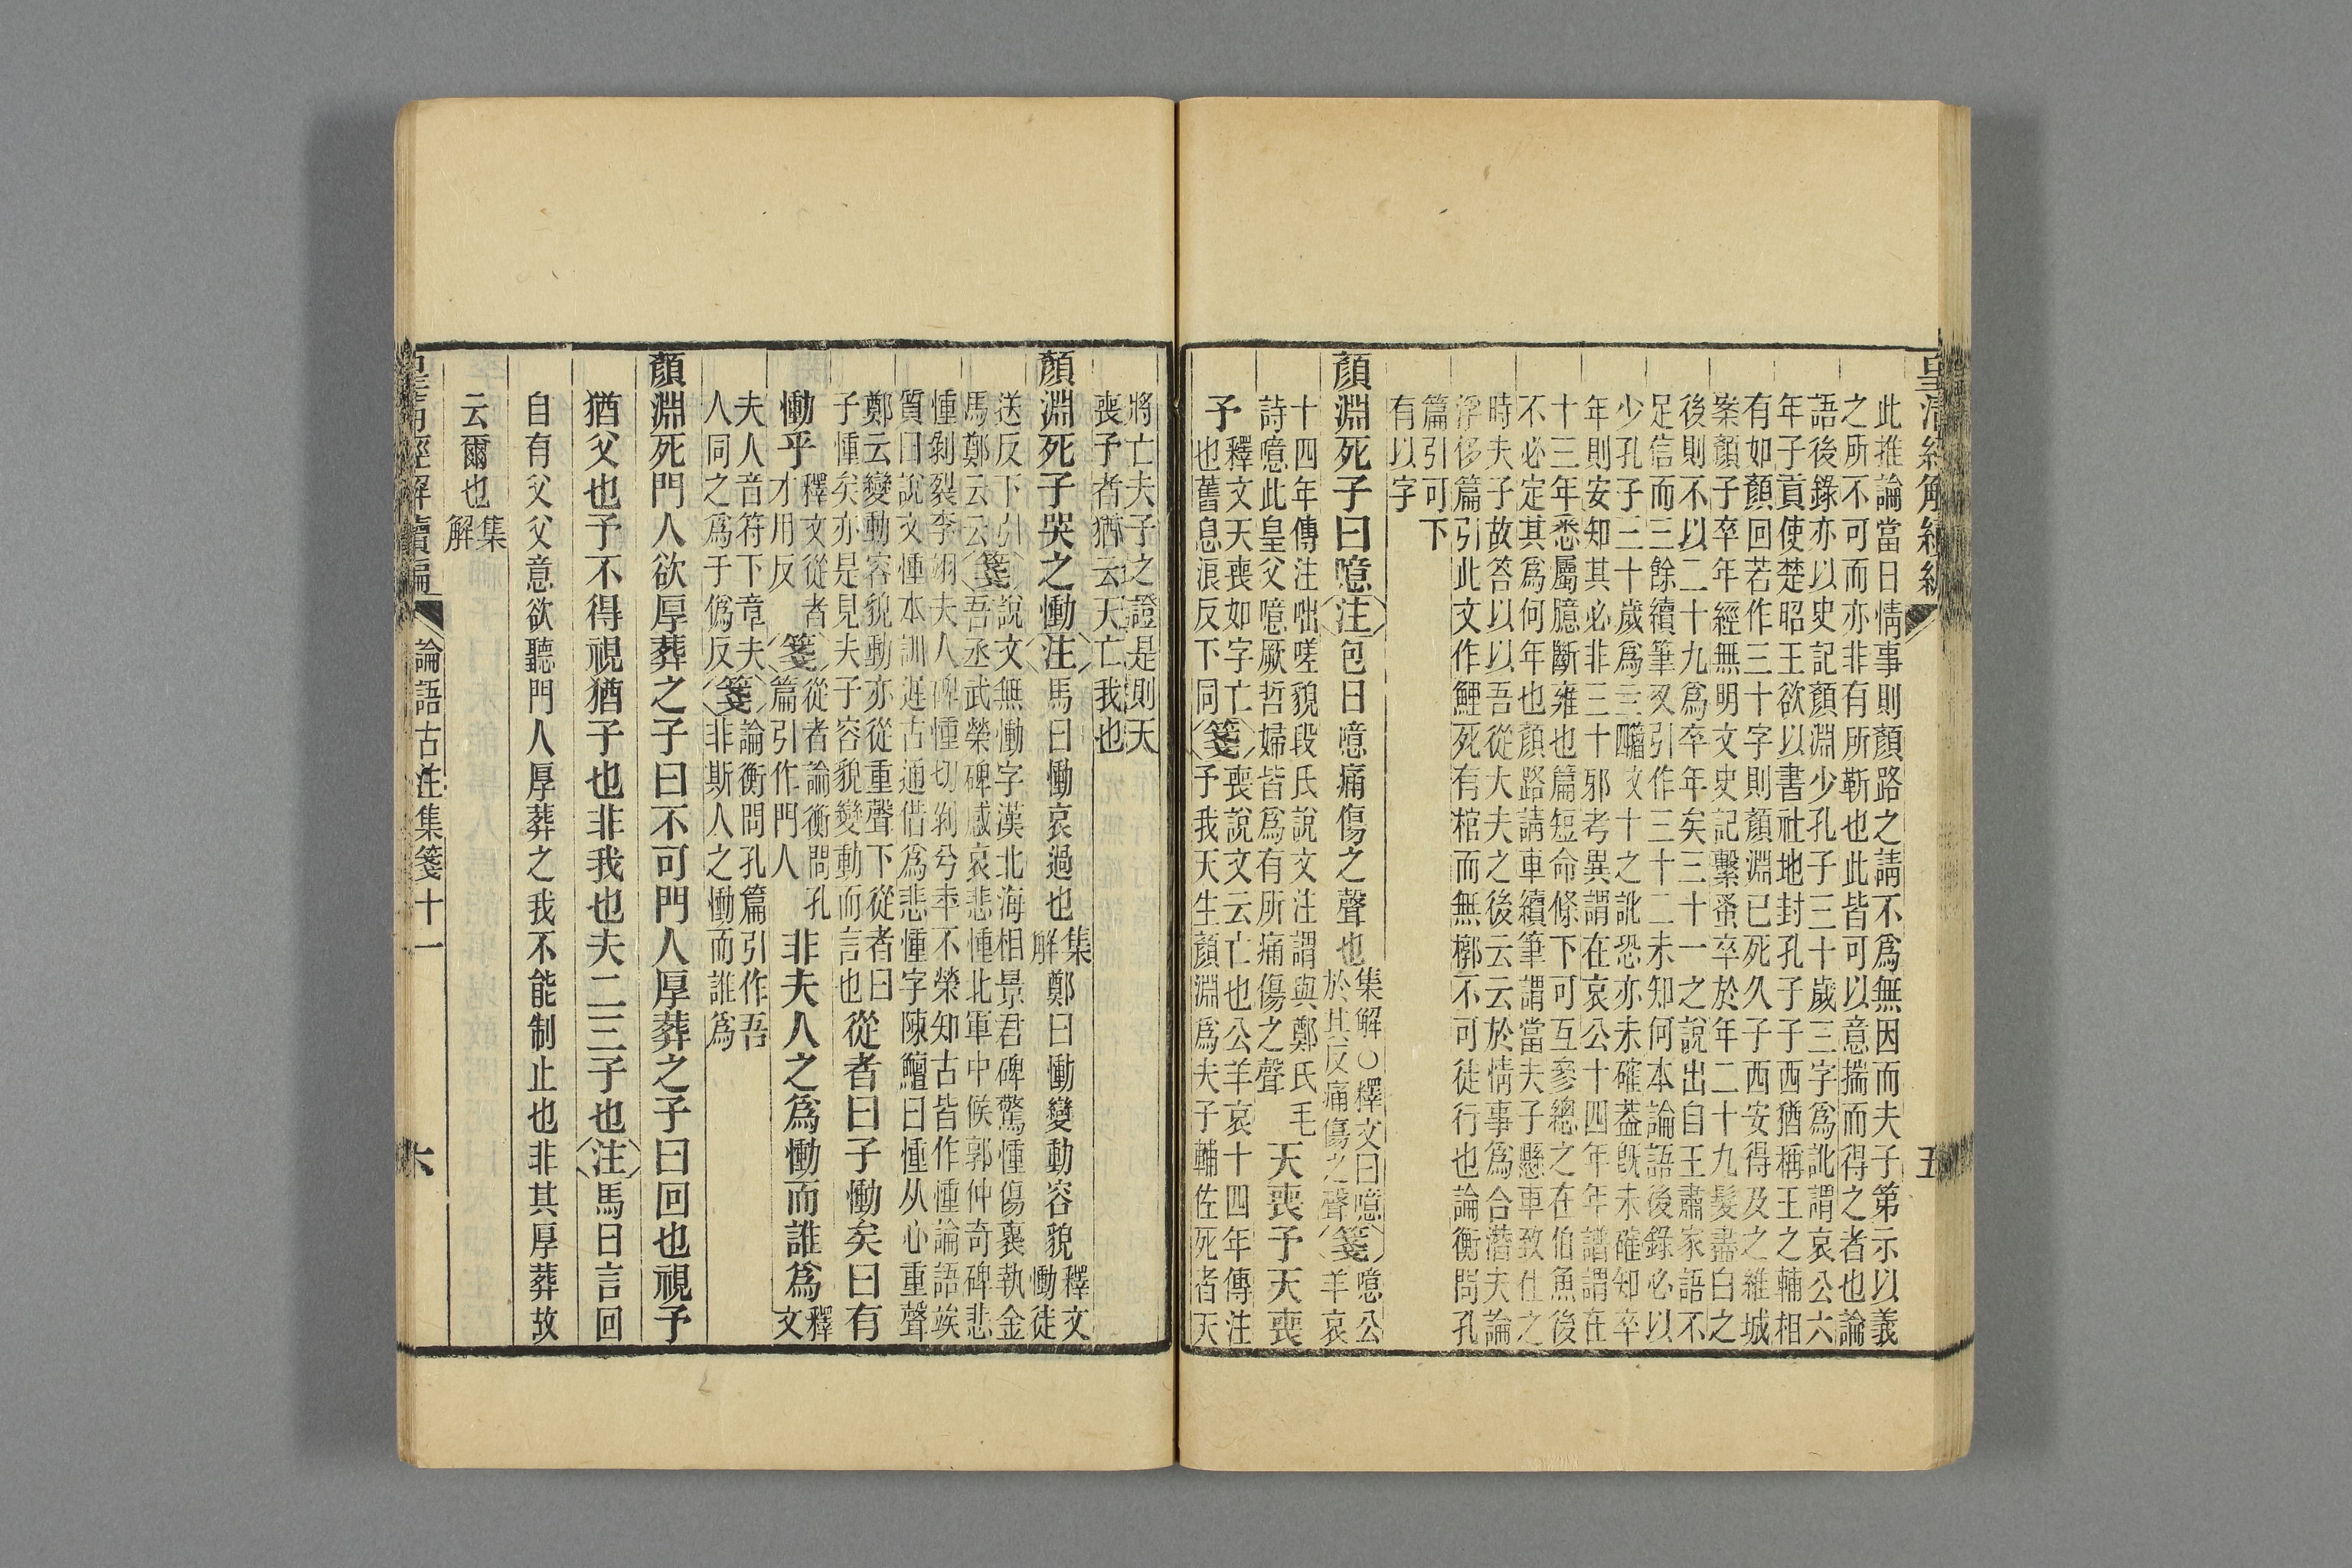 皇清經解續編
五
此推論當日情事則顏路之請不爲無因而夫子第示以義
之所不可而亦非有所靳也此皆可以意揣而得之者也論
語後錄亦以史記顏淵少孔子三十歲三字爲訛謂哀公六
年子貢使楚昭王欲以書社地封孔子子西猶稱王之輔相
有如顏回若作三十字則顏淵已死久子西安得及之維城
案顏子卒年經無明文史記繫蚤卒於年二十九髮盡白之
後則不以二十九爲卒年矣三十一之說出自王肅家語不
足信而三餘續筆又引作三十二未知何本論語後錄必以
少孔子三十歲爲三十之訛恐亦未確葢旣未確知卒
年則安知其必非三十邪考異謂在哀公十四年年譜謂在
十三年悉屬臆斷雍也篇短命條下可互參總之在伯魚後
不必定其爲何年也顏路請車續筆謂當夫子懸車致仕之
時夫子故答以以吾從大夫之後云云於情事爲合潛夫論
浮侈篇引此文作鯉死有棺而無槨不可徒行也論衡問孔
篇引可下
有以字
顏淵死子曰噫注包曰噫痛傷之聲也集解○釋文曰噫
於其反痛傷之聲箋噫公
羊哀
十四年傳注咄嗟貌段氏說文注謂與鄭氏毛
詩噫此皇父噫厥哲婦皆爲有所痛傷之聲
天喪予天喪
予釋文天喪如字亡
也舊息浪反下同箋喪說文云亡也公羊哀十四年傳注
予我天生顏淵爲夫子輔佐死者天
將亡夫子之證是則天
喪予者猶云天亡我也
顏淵死子哭之慟注馬曰慟哀過也集解鄭曰慟變動容貌釋文
慟徒
送反下引
馬鄭云云箋說文無慟字漢北海相景君碑驚慟傷褱執金
吾丞武榮碑感哀悲慟北軍中候郭仲奇碑悲
慟剝裂李翊夫人碑慟切剝兮年不榮知古皆作慟論語竢
質曰說文慟本訓遲古通借爲悲慟字陳鱣曰慟从心重聲
鄭云變動容貌動亦從重聲下從者曰
子慟矣亦是見夫子容貌變動而言也
從者曰子慟矣曰有
慟乎釋文從者
才用反箋從者論衡問孔
篇引作門人
非夫人之爲慟而誰爲釋
文
夫人音符下章夫
人同之爲于僞反箋論衡問孔篇引作吾
非斯人之慟而誰爲
顏淵死門人欲厚葬之子曰不可門人厚葬之子曰回也視予
猶父也予不得視猶子也非我也夫二三子也注馬曰言回
自有父父意欲聽門人厚葬之我不能制止也非其厚葬故
云爾也集解
皇清經解續編
論語古注集箋十一
六